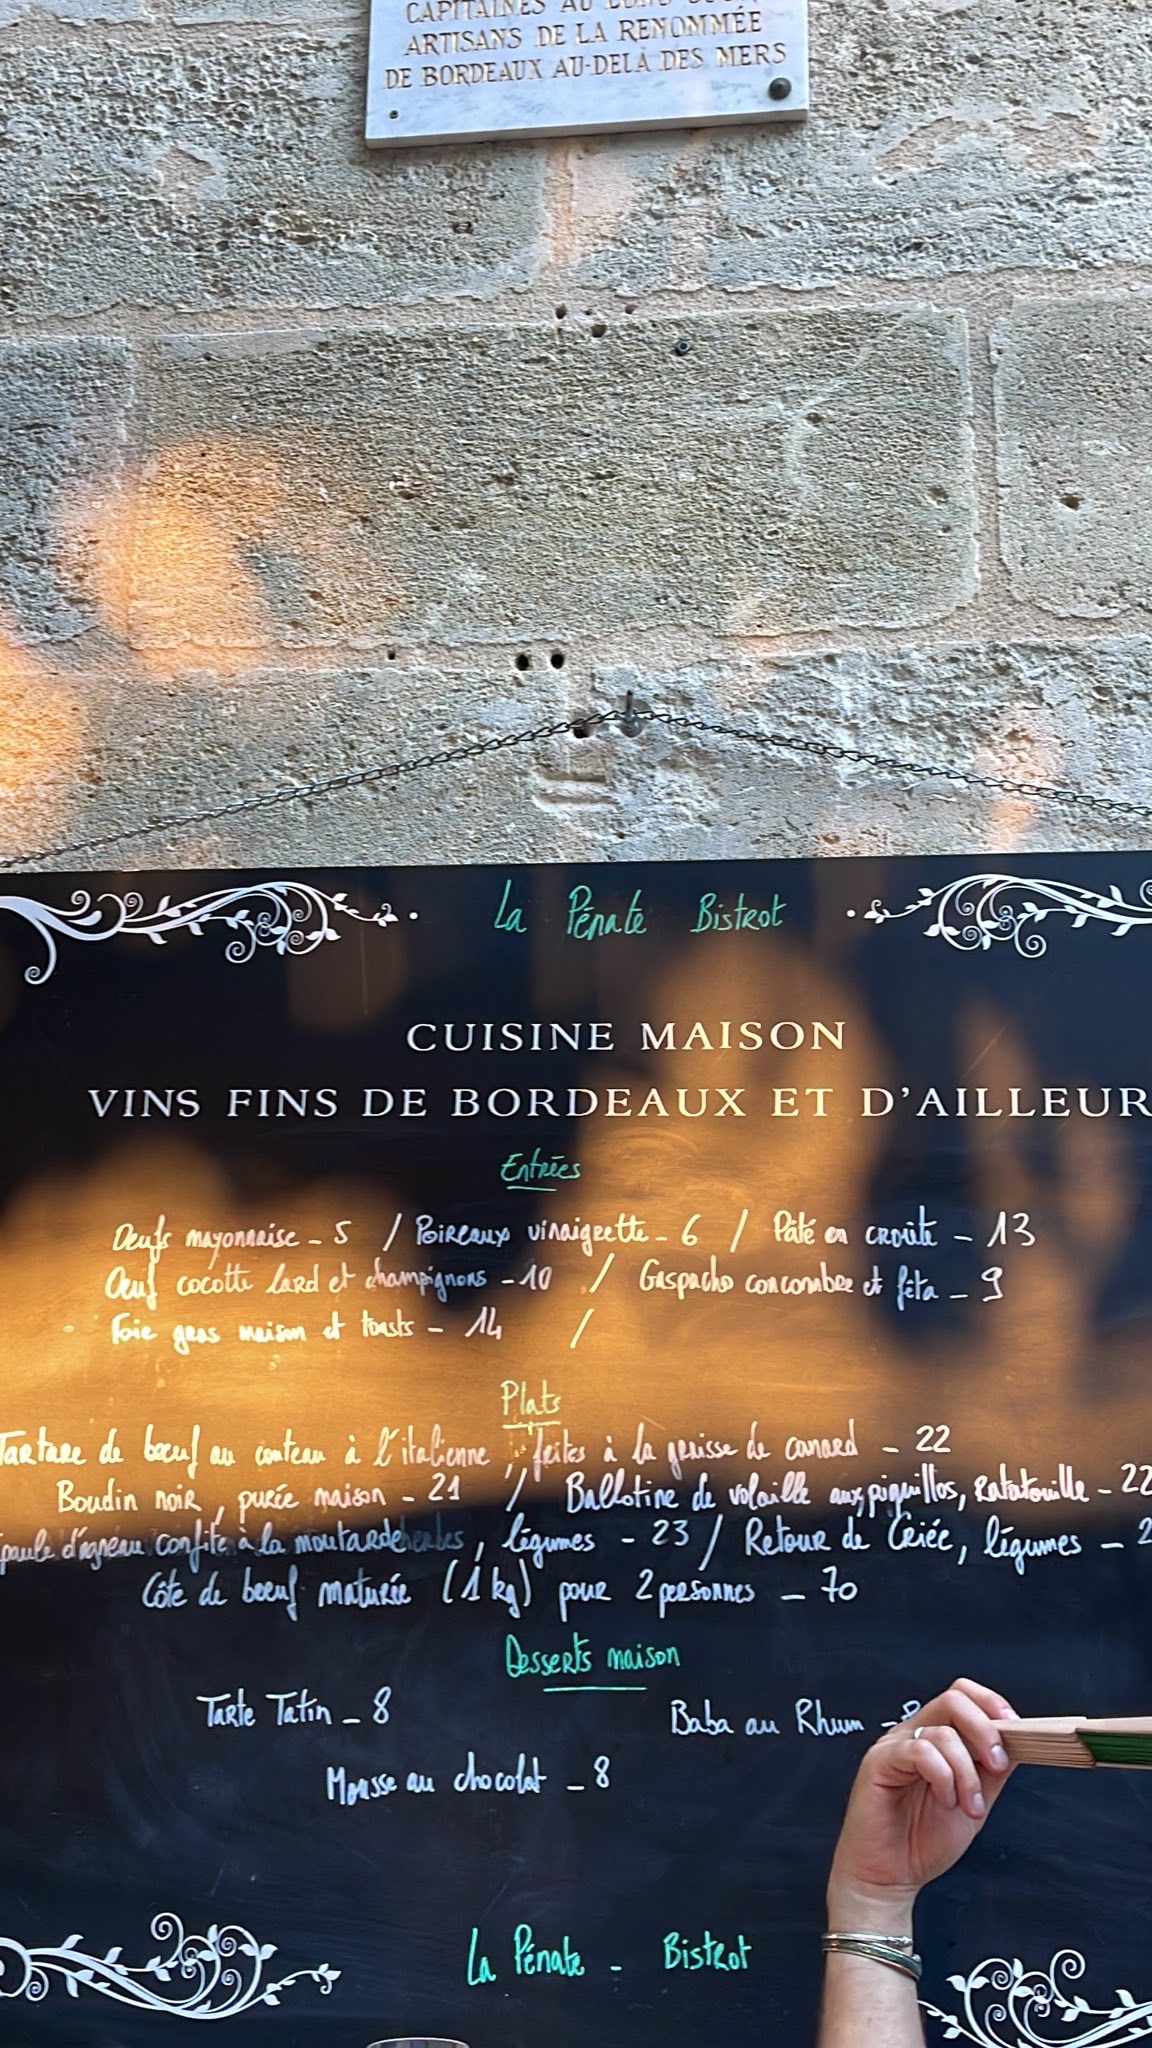 CAPITAINES AU LONG COURS
ARTISANS DE LA RENOMMÉE
DE BORDEAUX AU-DELÀ DES MERS
La Pénate Bistrot
CUISINE MAISON
VINS FINS DE BORDEAUX ET D'AILLEUR
Entrées
Oeufs mayonnaise - 5 / Poireaux vinaigrette - 6 / Pâté en croûte - 13
Œuf cocotte lard et champignons - 10 / Gaspacho concombre et feta - 9
Foie gras maison et toasts - 14 /
Plats
Tartare de bœuf au couteau à l'italienne, frites à la graisse de canard - 22
Boudin noir, purée maison - 21 / Ballotine de volaille aux piquillos, Ratatouille - 22
paule d'agneau confite à la moutarde herbes, légumes - 23 / Retour de Criée, légumes - 2
Côte de bœuf maturée (1 kg) pour 2 personnes - 70
Desserts maison
Tarte Tatin - 8 Baba au Rhum -
Mousse au chocolat - 8
La Pénate - Bistrot